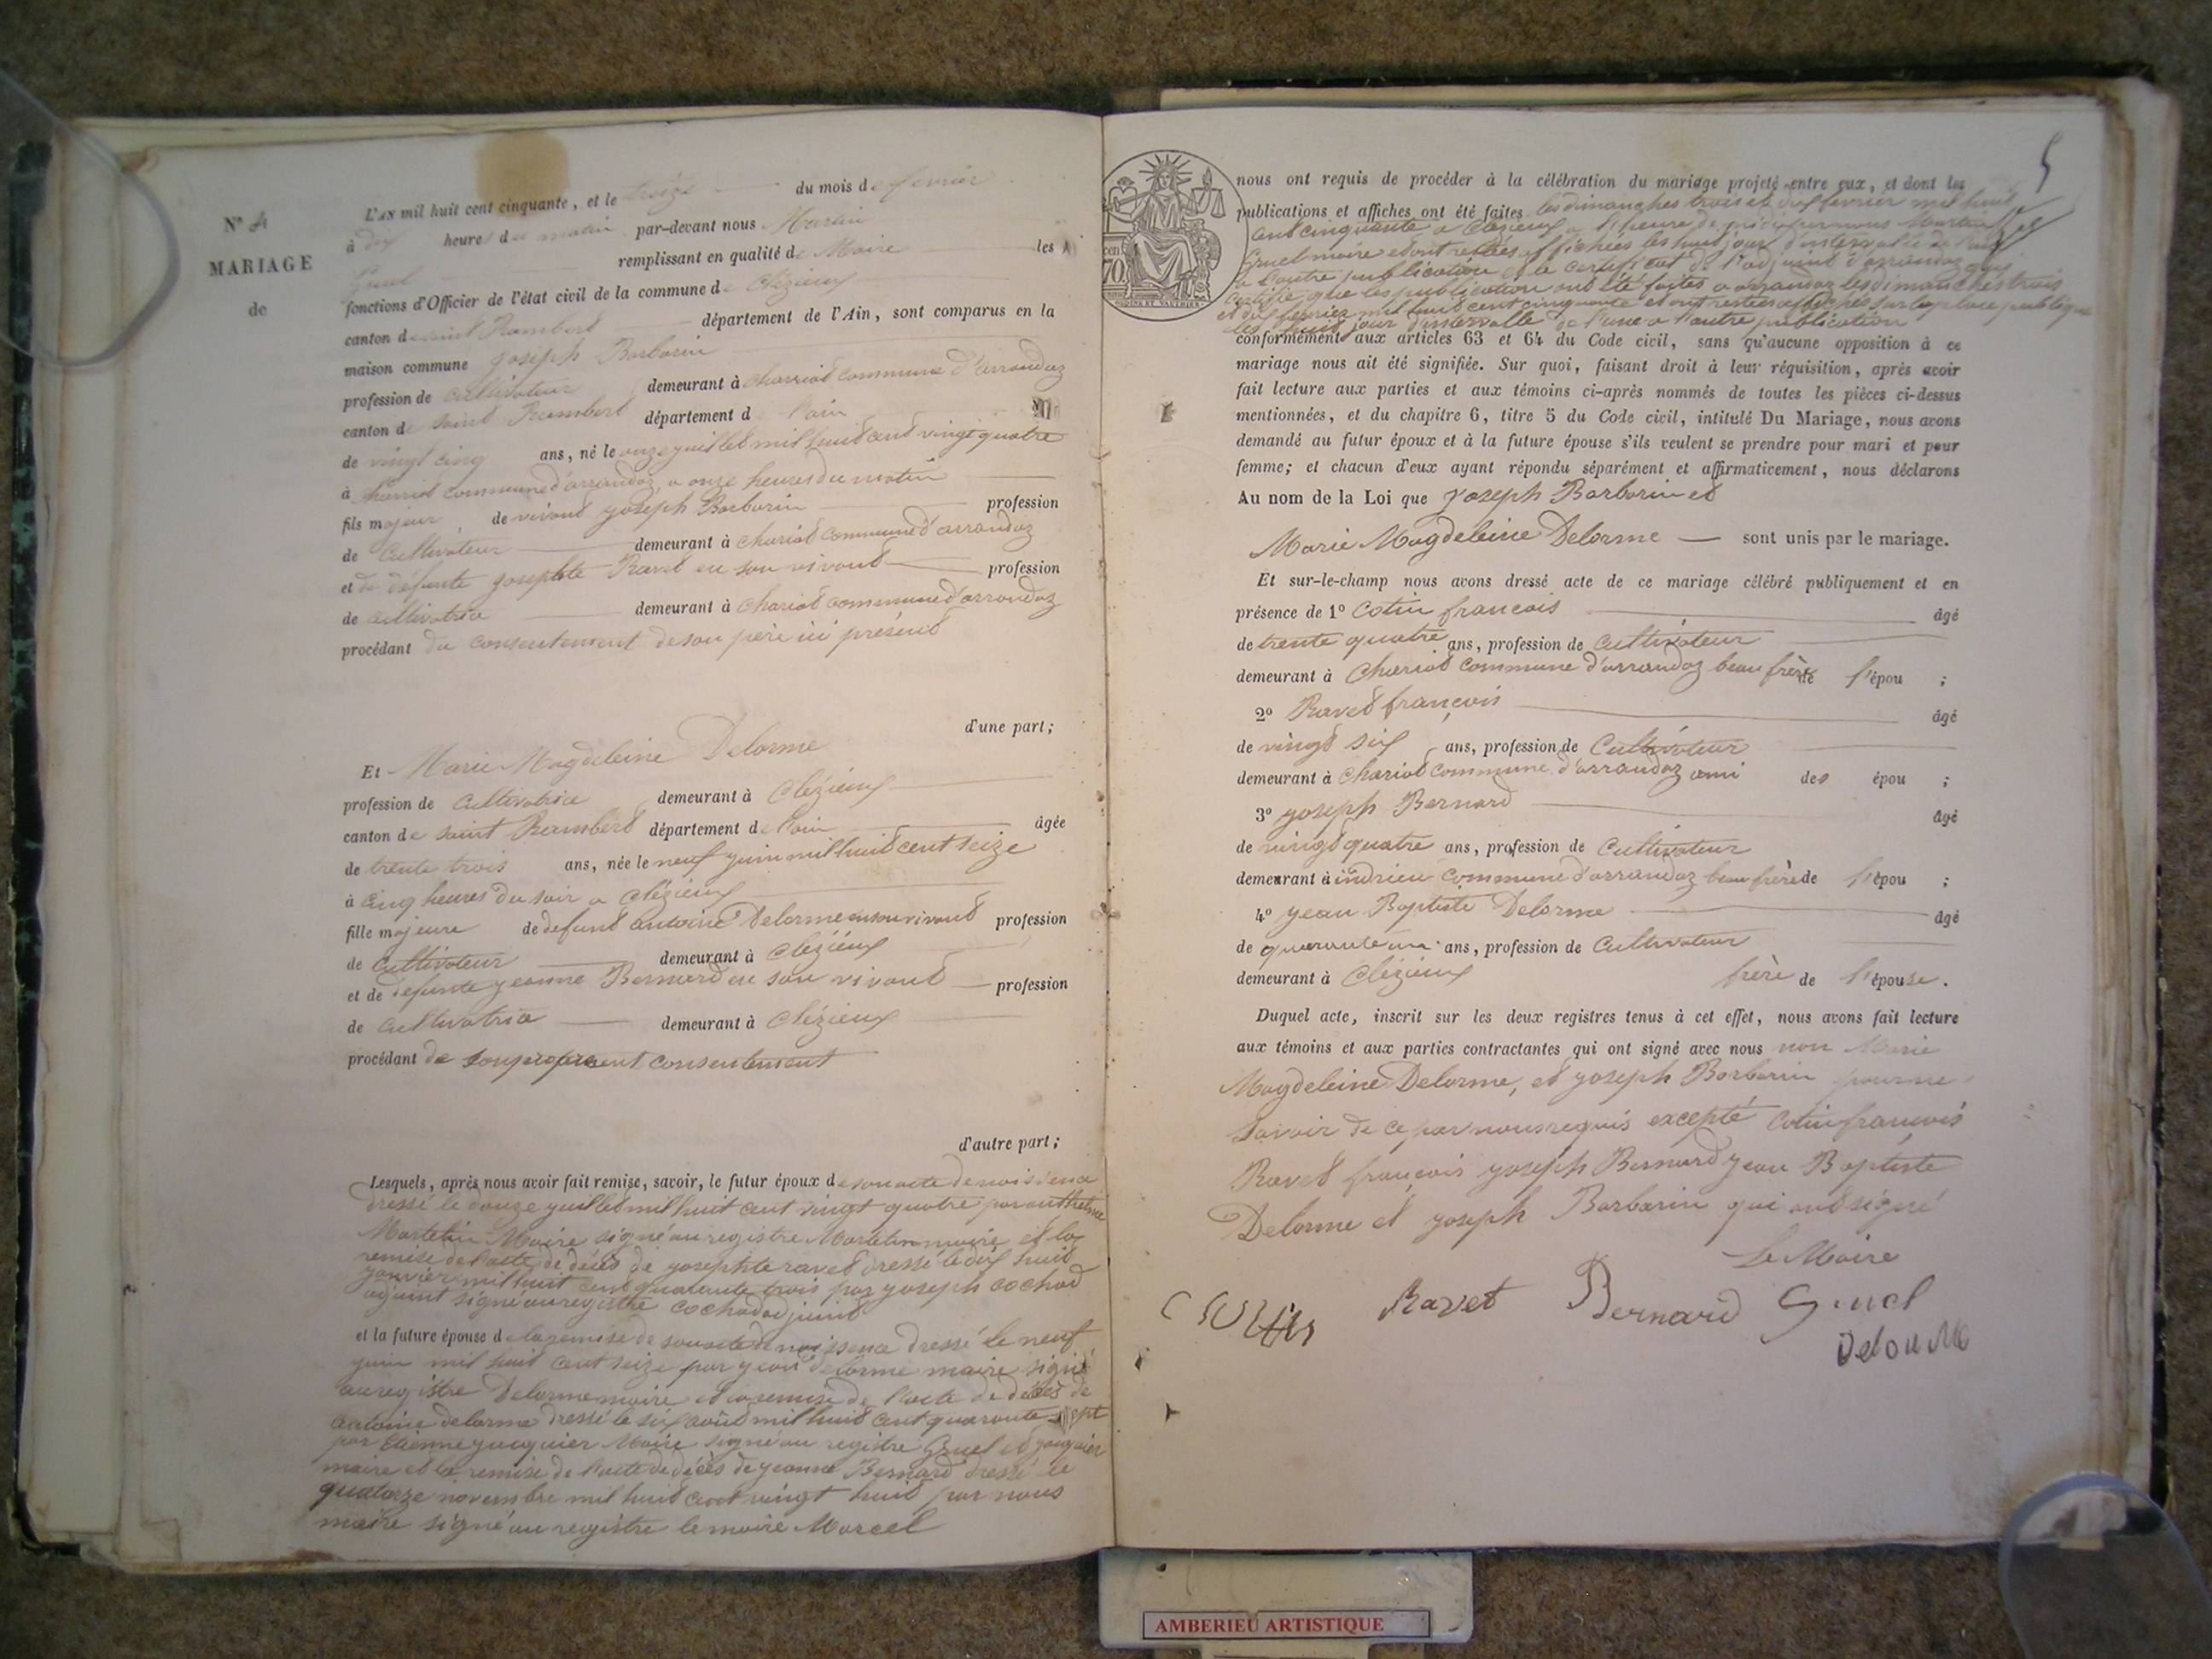 N° 4
MARIAGE
de
L'AN mil huit cent cinquante, et le treize du mois de fevrier
à dix heures du matin par-devant nous Martin
Gruel remplissant en qualité de Maire les
fonctions d'Officier de l'état civil de la commune de Clézieux
canton de saint Rambert département de l'Ain, sont comparus en la
maison commune joseph Barbarin
profession de cultivateur demeurant à charriot commune d'arrandaz
canton de saint Rambert département de l'ain
de vingt cinq ans, né le onze yuillet mil huit cent vingt quatre
à commune d'arrandaz, a onze heures du matin
fils majeur, de vivant yoseph Barbarin profession
de Cultivateur demeurant à chariot commune d'arrandaz
et de défunte yosephte Ravet en son vivant profession
de cultivatrice demeurant à chariot commune d'arrandaz
procédant du consentement de son père ici présent
d'une part;
Et Marie Magdeleine Delorme
profession de cultivatrice demeurant à Clézieux
canton de saint Rambert département de l'ain âgée
de trente trois ans, née le neuf yuin mil huit cent seize
à cinq heures du soir a Clézieux
fille majeure de defunt antoine Delorme en son vivant profession
de Cultivateur demeurant à Clézieux
et de defunte yeanne Bernard en son vivant profession
de cultivatrice demeurant à Clézieux
procédant de son consentement
d'autre part;
Lesquels, après nous avoir fait remise, savoir, le futur époux de son acte de naissence
dressé le douze yuillet mil huit cent vingt quatre par
Martelin Maire signé au registre Martelin maire et la
remise de l'acte de décès de yosephte ravet dressé le dix huit
yanvier mil huit cent quarante trois par yoseph cochod
adjoint signé au registre cochod adjoint
et la future épouse de la remise de son acte de naissence dressé le neuf
yuin mil huit cent seize par yean delorme maire signé
au registre Delorme maire et la remise de l'acte de décès de
antoine delorme dressé le six août mil huit cent quarante sept
par Etienne yacquier Maire signé au registre Gruel et yacquier
maire et la remise de l'acte de décès de yeanne Bernard dressé le
quatorze novembre mil huit cent vingt huit par nous
maire signé au registre le maire Marcel
5
nous ont requis de procéder à la célébration du mariage projeté entre eux, et dont les
publications et affiches ont été faites les dimanches trois et dix fevrier mil huit
cent cinquante a Clézieux a l'heure de midi par nous Martin
Gruel maire et ont restées affichées les huit jour d'intervalle de l'une
a l'autre publication et le certificat de l'adjoint d'arrandaz qui
certifie que les publication ont été faites a arrandaz les dimanches trois
et dix fevrier mil huit cent cinquante et ont restées affichés sur la place publique
les huit jour d'intervalle de l'une a l'autre publication
conformément aux articles 63 et 64 du Code civil, sans qu'aucune opposition à ce
mariage nous ait été signifiée. Sur quoi, faisant droit à leur réquisition, après avoir
fait lecture aux parties et aux témoins ci-après nommés de toutes les pièces ci-dessus
mentionnées, et du chapitre 6, titre 5 du Code civil, intitulé Du Mariage, nous avons
demandé au futur époux et à la future épouse s'ils veulent se prendre pour mari et pour
femme; et chacun d'eux ayant répondu séparément et affirmativement, nous déclarons
Au nom de la Loi que yoseph Barbarin et
Marie Magdeleine Delorme sont unis par le mariage.
Et sur-le-champ nous avons dressé acte de ce mariage célébré publiquement et en
présence de 1° Cotin francois âgé
de trente quatre ans, profession de Cultivateur
demeurant à Chariot commune d'arrandaz beau frère de l'épou ;
2° Ravet françois âgé
de vingt six ans, profession de Cultivateur
demeurant à chariot commune d'arrandaz ami des épou ;
3° yoseph Bernard âgé
de vingt quatre ans, profession de Cultivateur
demeurant à indrieu commune d'arrandaz beau frère de l'épou ;
4° yean Baptiste Delorme âgé
de quarante un ans, profession de Cultivateur
demeurant à Clézieux frère de l'épouse.
Duquel acte, inscrit sur les deux registres tenus à cet effet, nous avons fait lecture
aux témoins et aux parties contractantes qui ont signé avec nous non Marie
Magdeleine Delorme, et yoseph Barbarin pour ne
savoir de ce par nous requis excepté Cotin françois
Ravet françois yoseph Bernard yean Baptiste
Delorme et yoseph Barbarin qui ont signé
Le Maire
Ravet Bernard Gruel
Delorme
AMBERIEU ARTISTIQUE